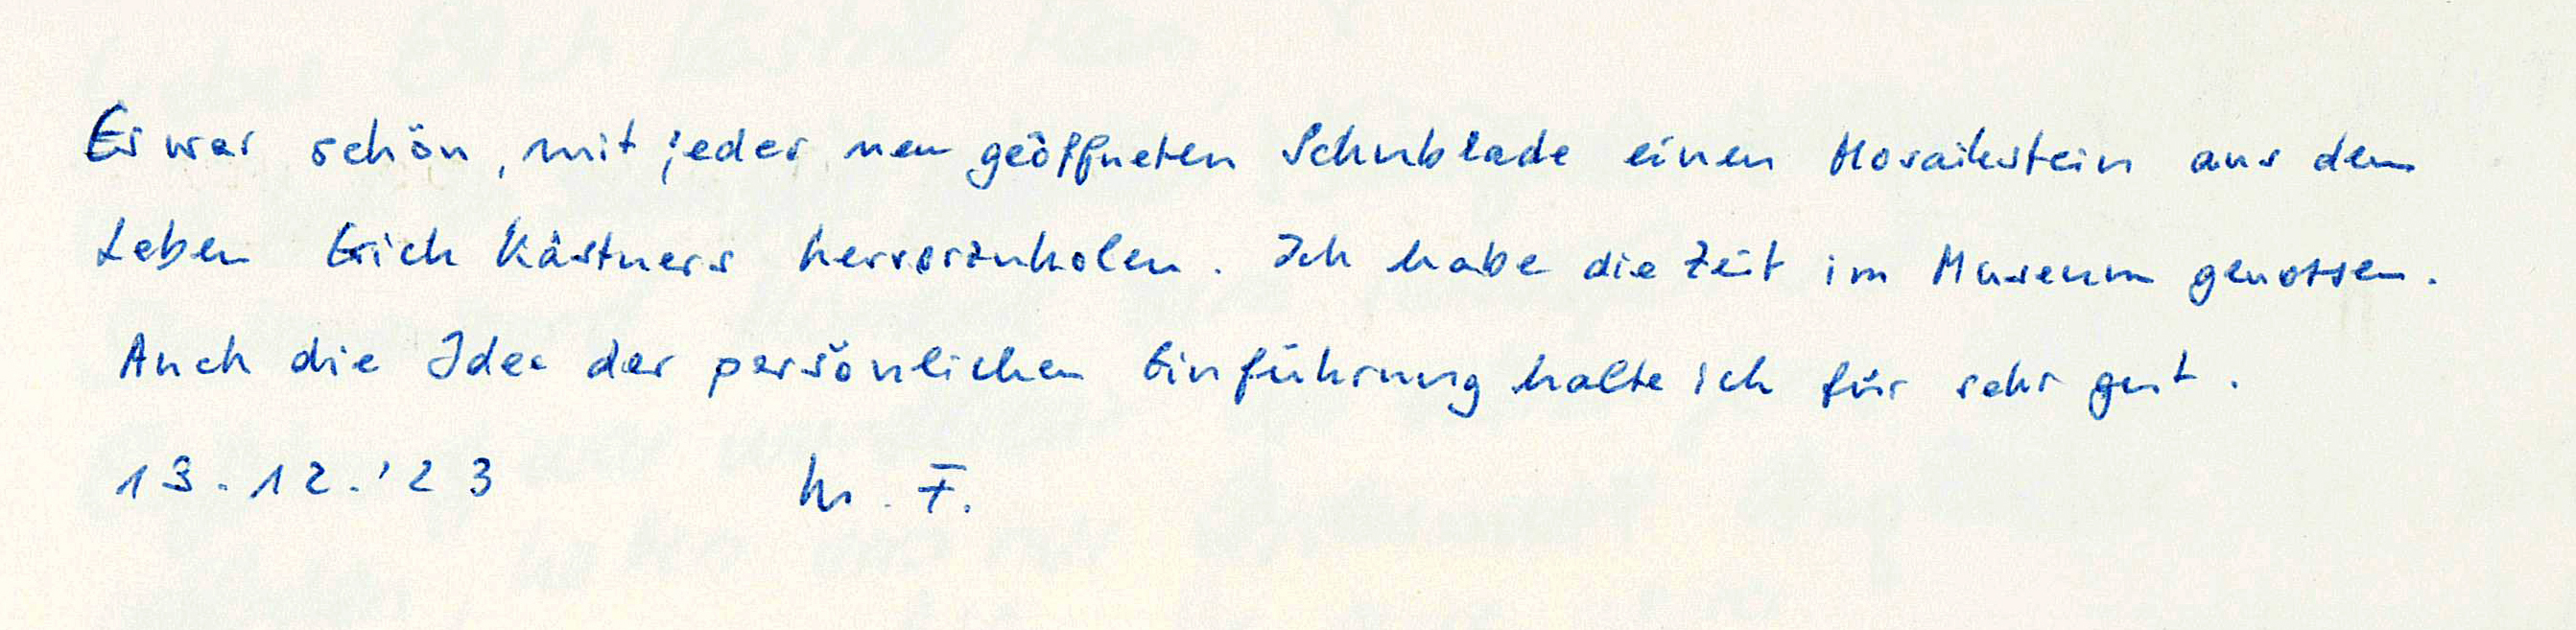 Es war schön, mit jeder neu geöffneten Schublade einen Mosaikstein aus dem
Leben Erich Kästners hervorzuholen. Ich habe die Zeit im Museum genossen.
Auch die Idee der persönlichen Einführung halte ich für sehr gut.
13.12.'23 F.